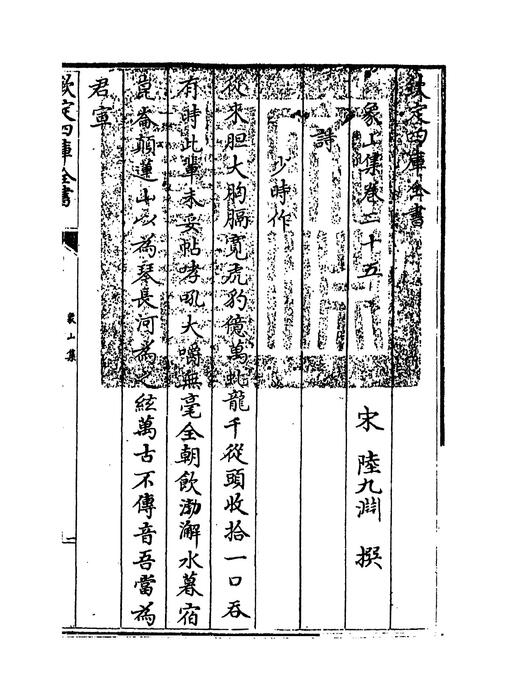 欽定四庫全書
象山集卷二十五
宋 陸九淵 撰
詩
少時作
從來胆大胸膈寛虎豹億萬虬龍千從頭收拾一口吞
有時此輩未妥帖哮吼大嚼無毫全朝飲渤澥水暮宿
崑崙巔連山以為琴長河為之絃萬古不傳音吾當為
君宣
欽定四庫全書
象山集
一